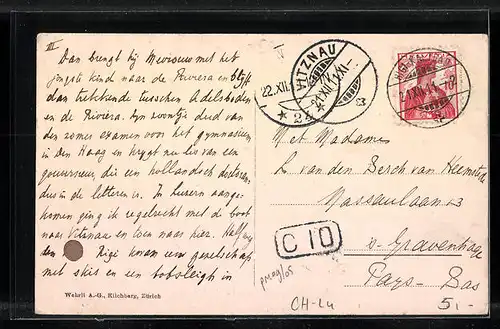 III
Dan brengt hij Mevrouw met het
jongste kind naar de Riviera en blijft
dan trekkende tusschen Adelboden
en de Riviera. Zijn zoontje deed van
den zomer examen voor het gymnasium
in den Haag en krijgt nu les van een
gouverneur, die een hollandsch
dus in de letteren is. In Luzern aange-
komen ging ik regelrecht met de boot
naar Vitznau en toen naar hier. Halfweg
den Rigi kwam een gezelschap
met skis en een bobsleigh in
Wehrli A.-G., Kilchberg, Zürich
VITZNAU
22.XII.
Met Madame
van den Berch van Heemstede
Nassaulaan 23
s-Gravenhage
Pays-Bas
C 10
CH-LU
5.-